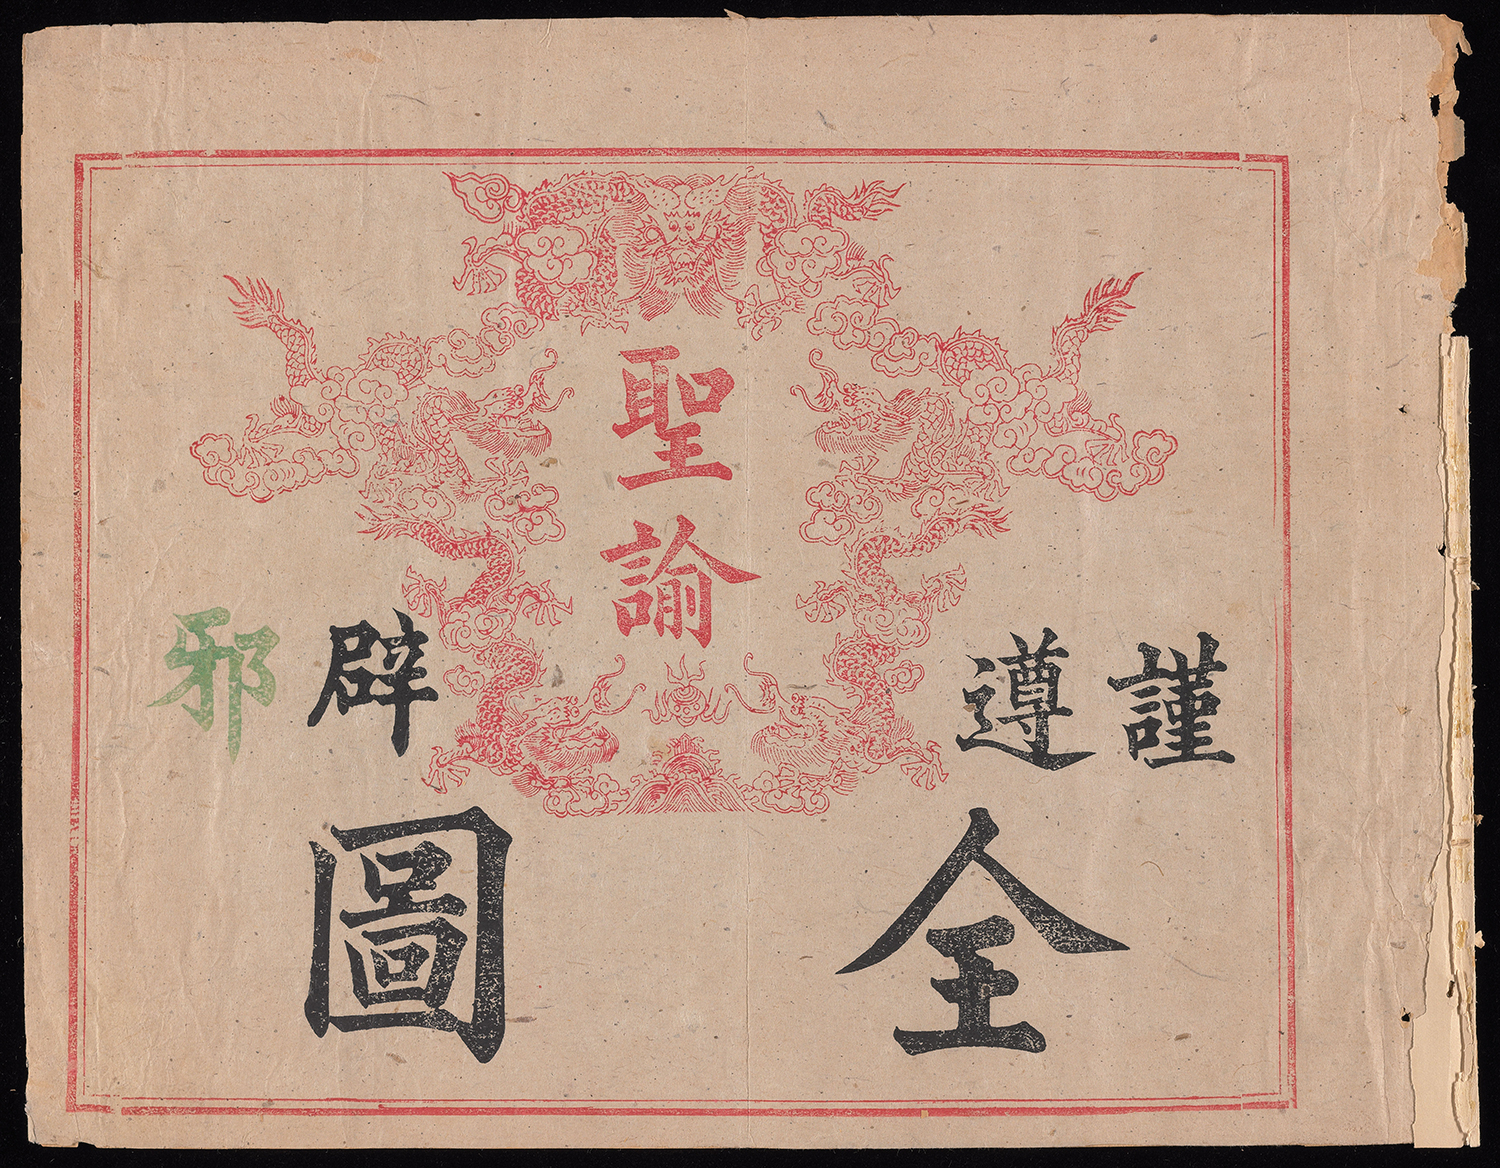 謹遵
聖諭
辟邪
全圖